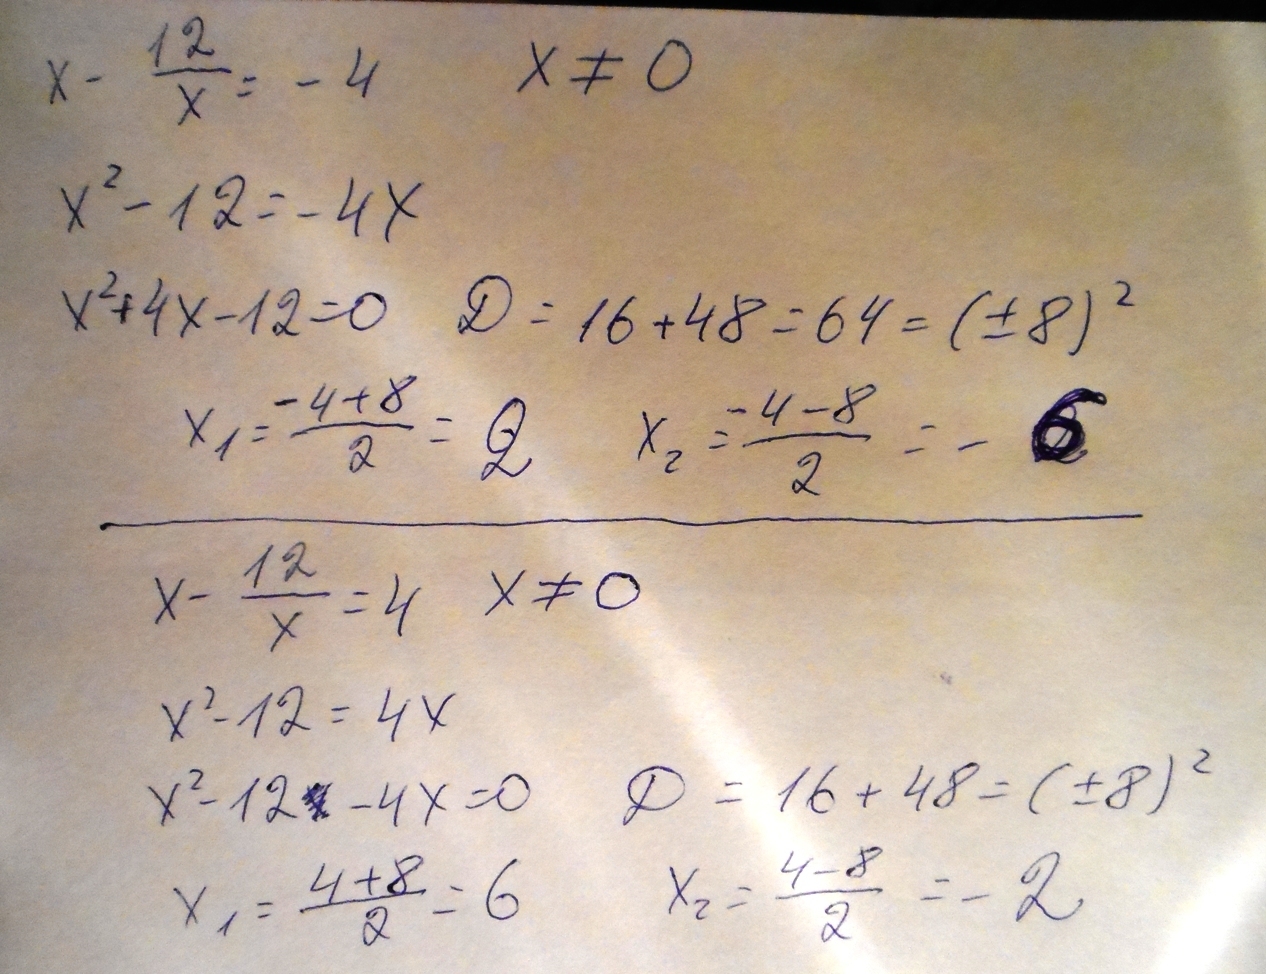 x - 12/x = - 4 x ≠ 0
x² - 12 = - 4x
x² + 4x - 12 = 0 D = 16 + 48 = 64 = (±8)²
x₁ = (-4+8)/2 = 2 x₂ = (-4-8)/2 = - 6
x - 12/x = 4 x ≠ 0
x² - 12 = 4x
x² - 12 - 4x = 0 D = 16 + 48 = (±8)²
x₁ = (4+8)/2 = 6 x₂ = (4-8)/2 = - 2